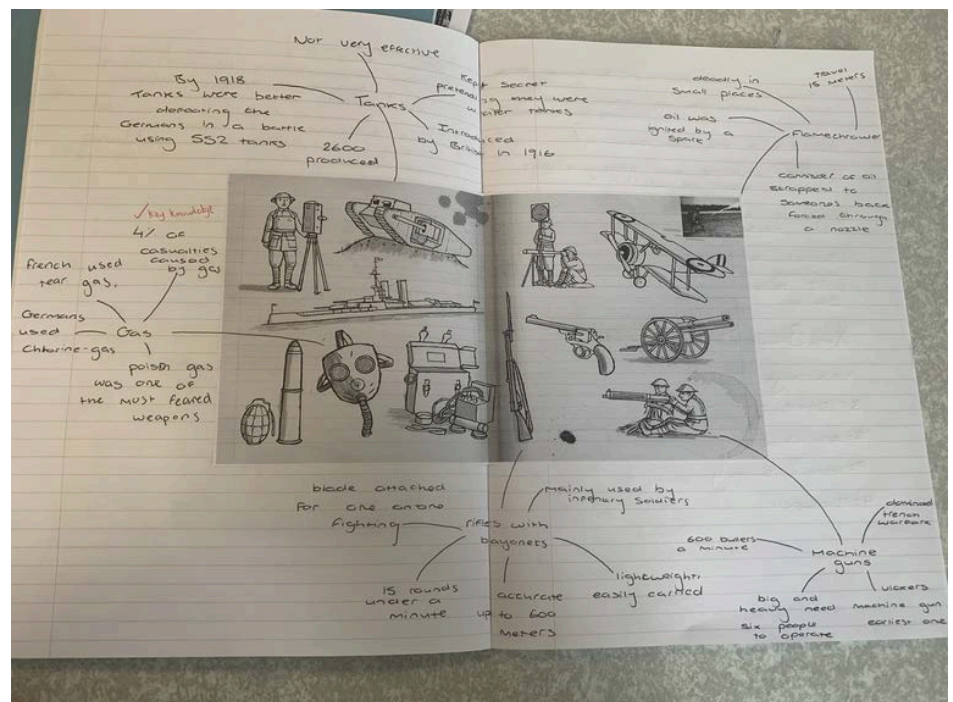 Not very effective
By 1918
Tanks were better
defeating the
Germans in a battle
using 552 tanks
Tanks
Kept secret
they were
tanks
2600
produced
Introduced
by British in 1916
deadly in
small places
travel
15 meters
oil was
ignited by a
spark
Flamethrower
consider of oil
strapped to
someones back
forced through
a nozzle
✓ Key knowledge
4% of
casualties
caused
by gas
French used
tear gas.
Germans
used
Chlorine-gas
Gas
poison gas
was one of
the must feared
weapons
blade attached
for one on one
fighting
Mainly used by
infantry soldiers
rifles with
bayonets
15 rounds
under a
minute
accurate
up to 600
meters
lightweight,
easily carried
600 bullets
a minute
trench
warfare
Machine
guns
big and
heavy need
six people
to operate
vickers
machine gun
earliest one